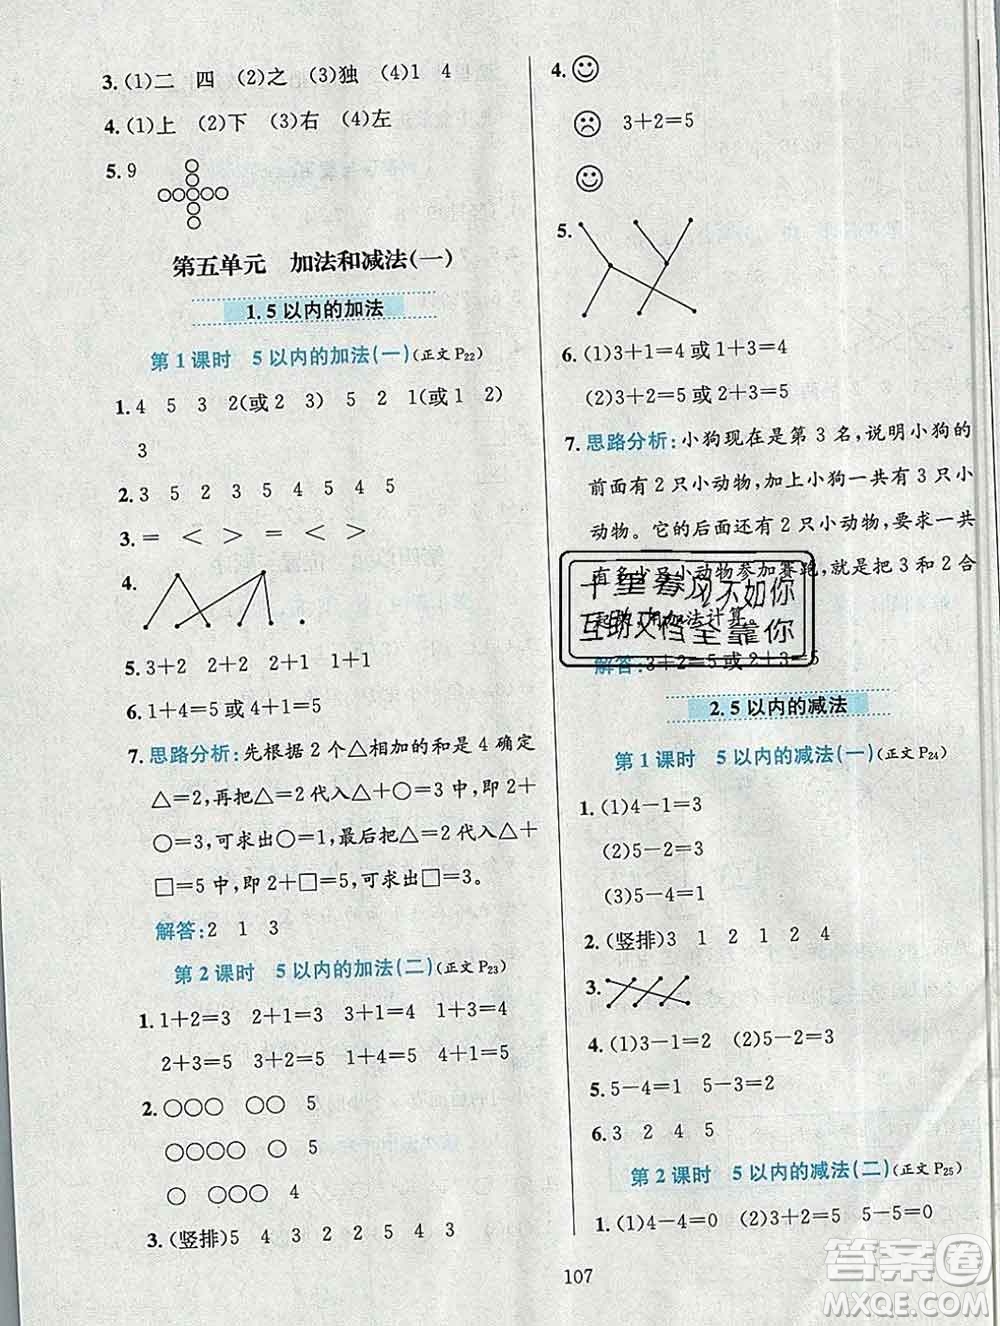 3.(1)二 四 (2)之 (3)独 (4)1 4
4.(1)上 (2)下 (3)右 (4)左
5.9
第五单元 加法和减法(一)
1.5以内的加法
第1课时 5以内的加法(一)(正文P22)
1.4 5 3 2(或2 3) 5 2 1(或1 2)
3
2.3 5 2 5 4 5 4 5
3.= < > = < >
4.
5.3+2 2+2 1+1
6.1+4=5或4+1=5
7.思路分析:先根据2个△相加的和是4确定
△=2,再把△=2代入△+○=3中,即2+
○=3,可求出○=1,最后把△=2代入△+
□=5中,即2+□=5,可求出□=3。
解答:2 1 3
第2课时 5以内的加法(二)(正文P23)
1.1+2=3 2+1=3 3+1=4 1+3=4
2+3=5 3+2=5 1+4=5 4+1=5
2.○○○ ○○ 5
○○○○ ○ 5
○ ○○○ 4
3.(竖排)5 4 3 2 2 5 4 3
4.
3+2=5
5.
6.(1)3+1=4或1+3=4
(2)3+2=5或2+3=5
7.思路分析:小狗现在是第3名,说明小狗的
前面有2只小动物,加上小狗一共有3只小
动物。它的后面还有2只小动物,要求一共
有多少只小动物参加赛跑,就是把3和2合
起来,用加法计算。
解答:3+2=5或2+3=5
千里春风不如你
互助文档全靠你
2.5以内的减法
第1课时 5以内的减法(一)(正文P24)
1.(1)4-1=3
(2)5-2=3
(3)5-4=1
2.(竖排)3 1 2 1 2 4
3.
4.(1)3-1=2 (2)5-2=3
5.5-4=1 5-3=2
6.3 2 4 5
第2课时 5以内的减法(二)(正文P25)
1.(1)4-4=0 (2)3+2=5 5-5=0
107
答案圈
MXQE.COM